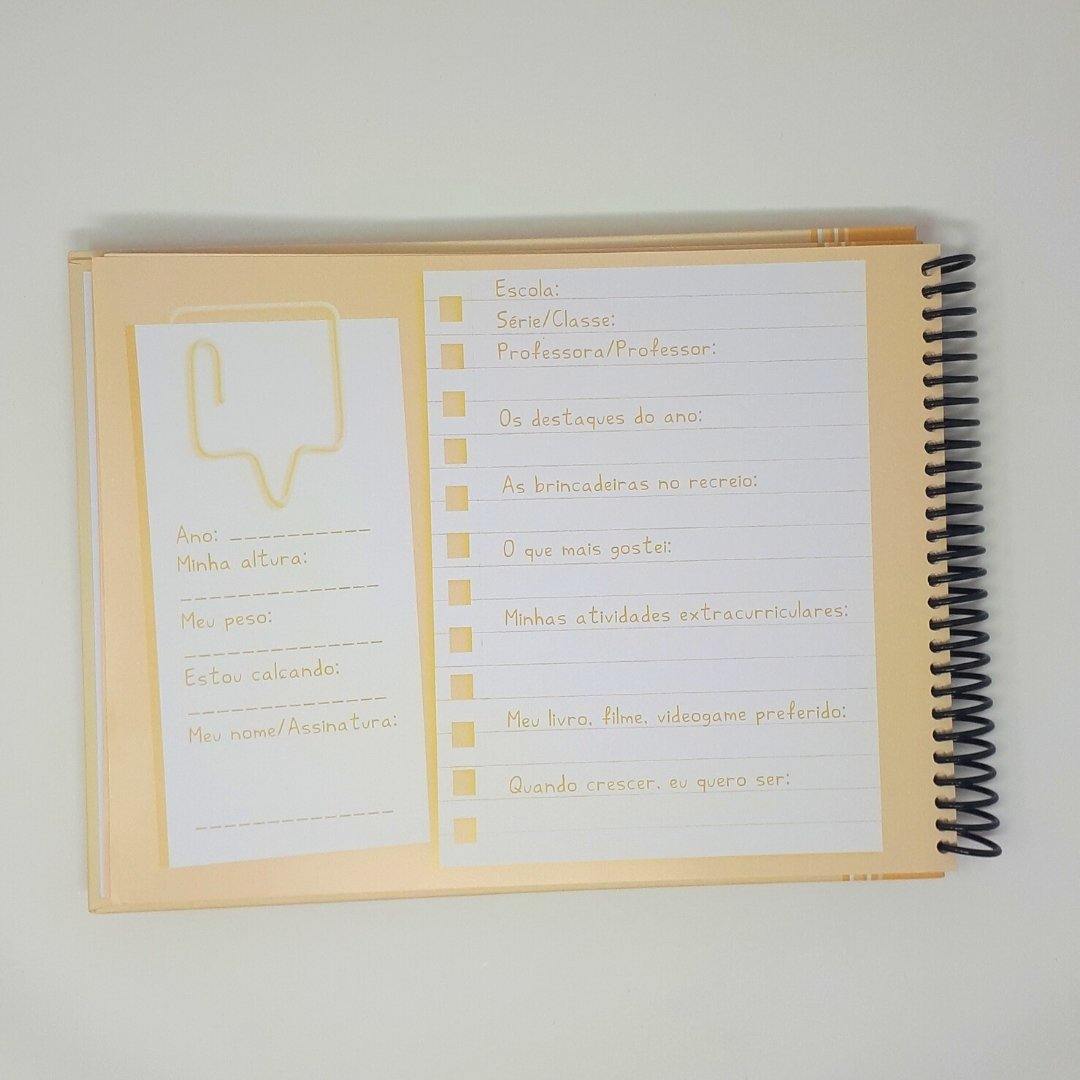 Ano: __________
Minha altura:
______________
Meu peso:
______________
Estou calçando:
______________
Meu nome/Assinatura:
______________
Escola:
Série/Classe:
Professora/Professor:
Os destaques do ano:
As brincadeiras no recreio:
O que mais gostei:
Minhas atividades extracurriculares:
Meu livro, filme, videogame preferido:
Quando crescer, eu quero ser: